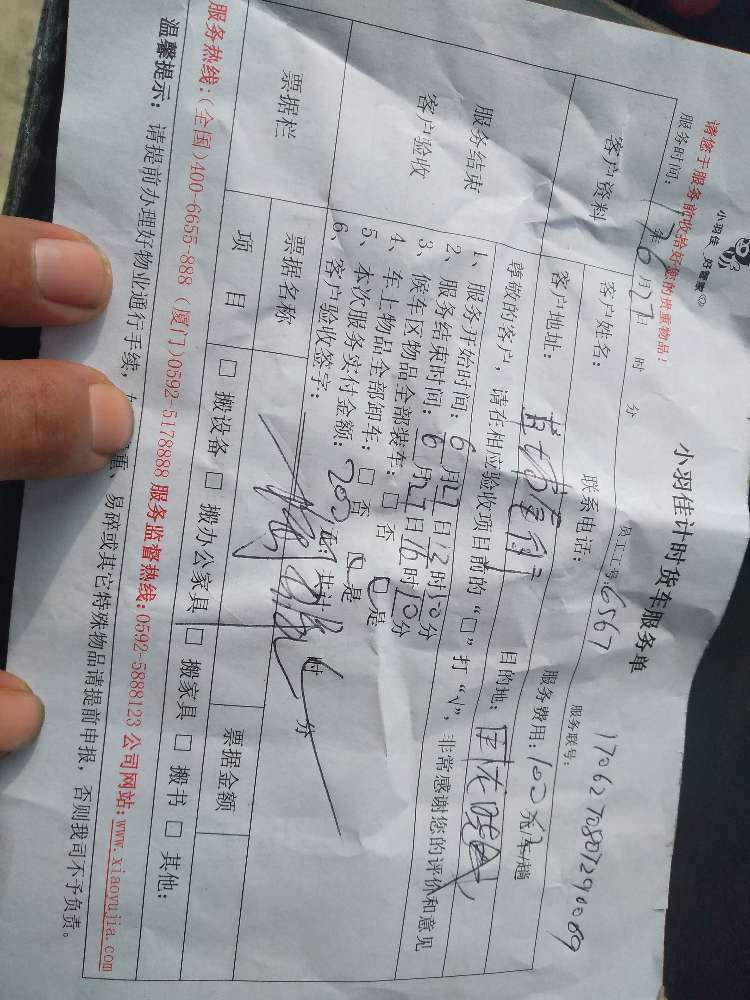 小羽佳·好管家
小羽佳计时货车服务单
请您于服务前收拾好您的贵重物品！
服务时间： 年6月27日 时 分 员工工号：6567 服务联号：
客户资料
客户姓名： 联系电话： 服务费用：100元/车/趟
客户地址： 目的地：
服务结束
客户验收
尊敬的客户，请在相应验收项目前的“口”打“√”，非常感谢您的评价和意见
1、服务开始时间：6月27日12时10分
2、服务结束时间：6月27日16时10分
3、候车区物品全部装车：□ 否 □ 是
4、车上物品全部卸车：□ 否 □ 是
5、本次服务实付金额：200元；共计 时 分
6、客户验收签字：
票据栏
票据名称 票据金额
项 目 □ 搬设备 □ 搬办公家具 □ 搬家具 □ 搬书 □ 其他：
服务热线：(全国)400-6655-888 (厦门)0592-5178888 服务监督热线：0592-5888123 公司网站：www.xiaoyujia.com
温馨提示：请提前办理好物业通行手续，易碎或其它特殊物品请提前申报，否则我司不予负责。